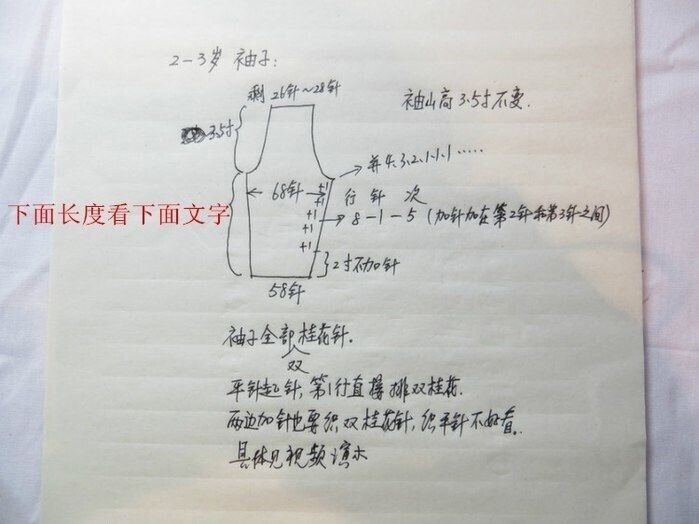 2-3岁 袖子:
剩26针~28针
袖山高3.5寸不变.
3.5寸
并4.3.2.1.1.1.....
68针
+1
+1
+1
+1
+1
行 针 次
8-1-5 (加针加在第2针和第3针之间)
下面长度看下面文字
2寸不加针
58针
袖子全部双桂花针.
平针起针,第1行直接排双桂花.
两边加针也要织双桂花针,织平针不好看.
具体见视频演示